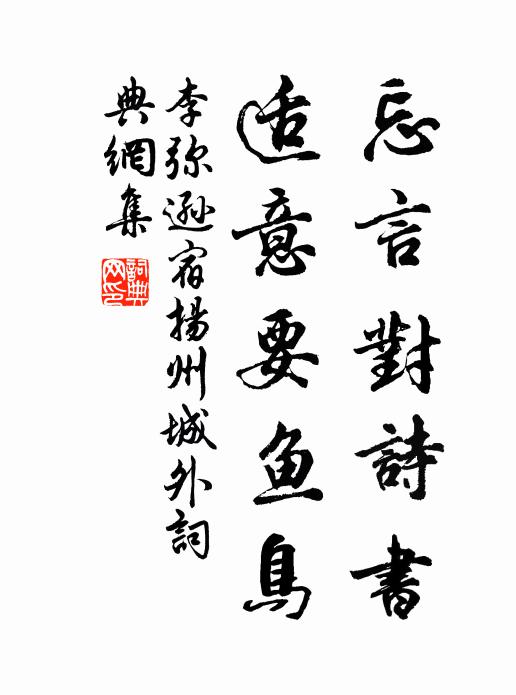 忘言對詩書
适意要鱼鳥
李弥遜宿揚州城外詞
典網集
詞典网印